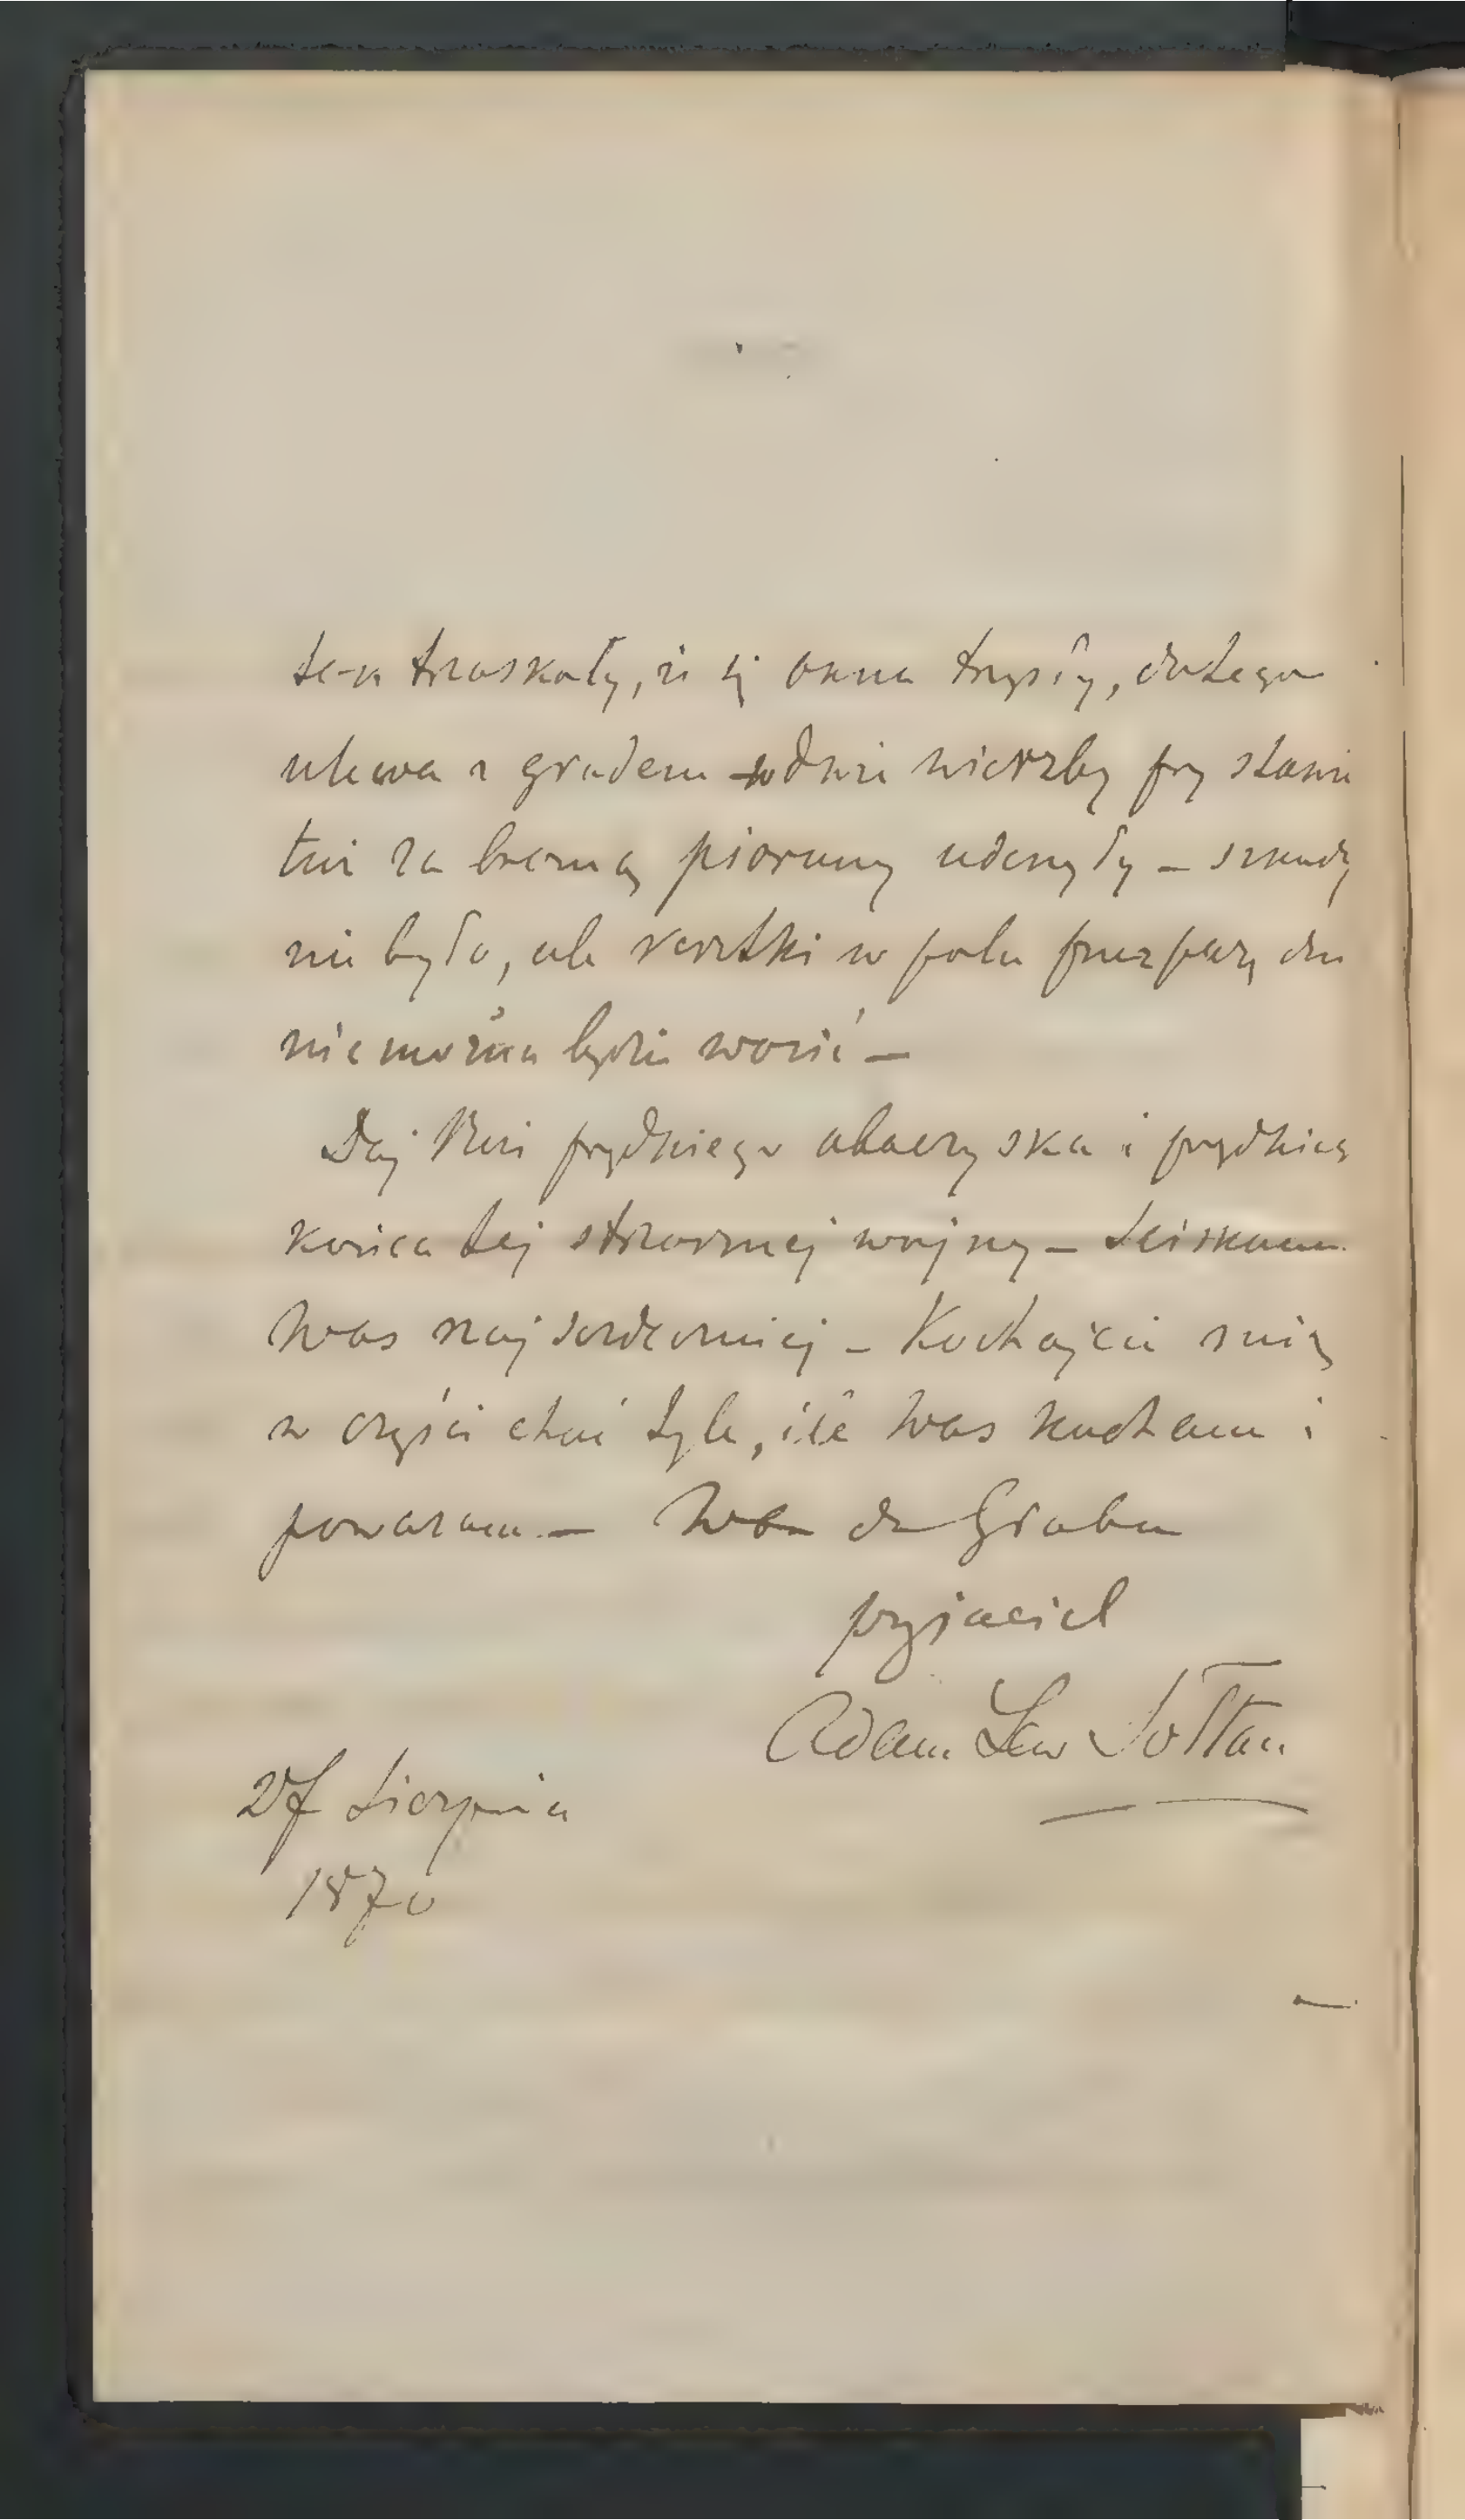 trzaskały, że się okna trzęsły, do tego
ulewa z gradem w dwie wierzby przy stawie
tuż za bramą pioruny uderzyły – szkody
nie było, ale resztki w polu przez parę dni
nie można będzie wozić –
Daj Boże prędkiego obaczyska i prędkiego
końca tej strasznej wojny – Ściskam
Was najserdeczniej – Kochajcie mię
w części choć tyle, ile Was kocham i
poważam – Wasz do Grobu
przyjaciel
Adam Lew Sołtan
27 Sierpnia
1870